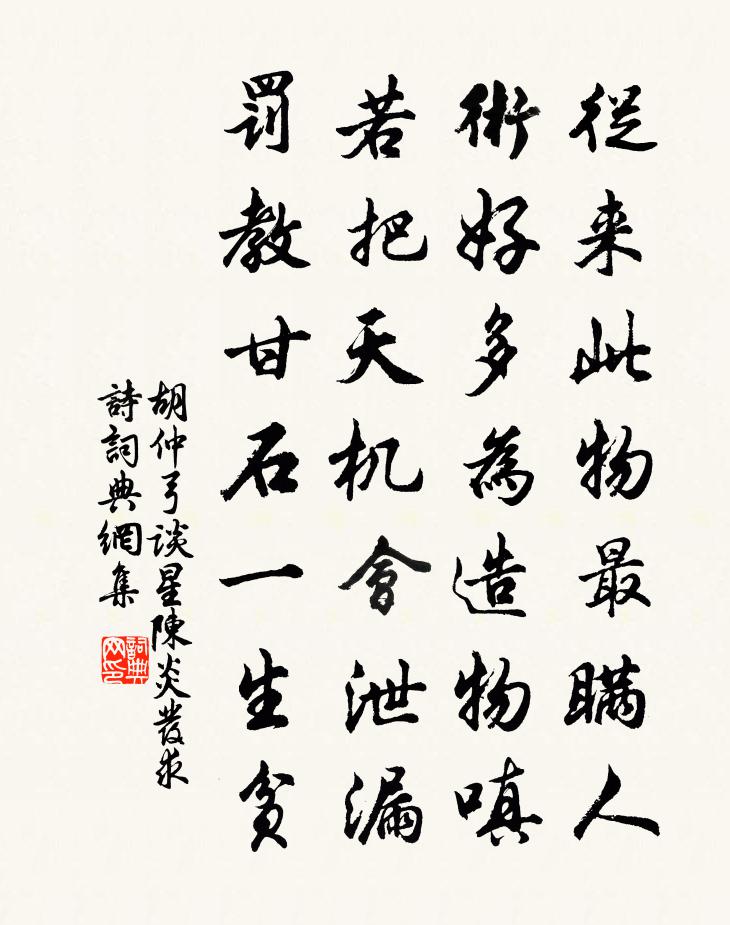 從来此物最瞞人
術好多為造物嗔
若把天机會泄漏
罰教甘石一生貧
胡仲弓談星陳炎發求
詩詞典網集
詞典
网印